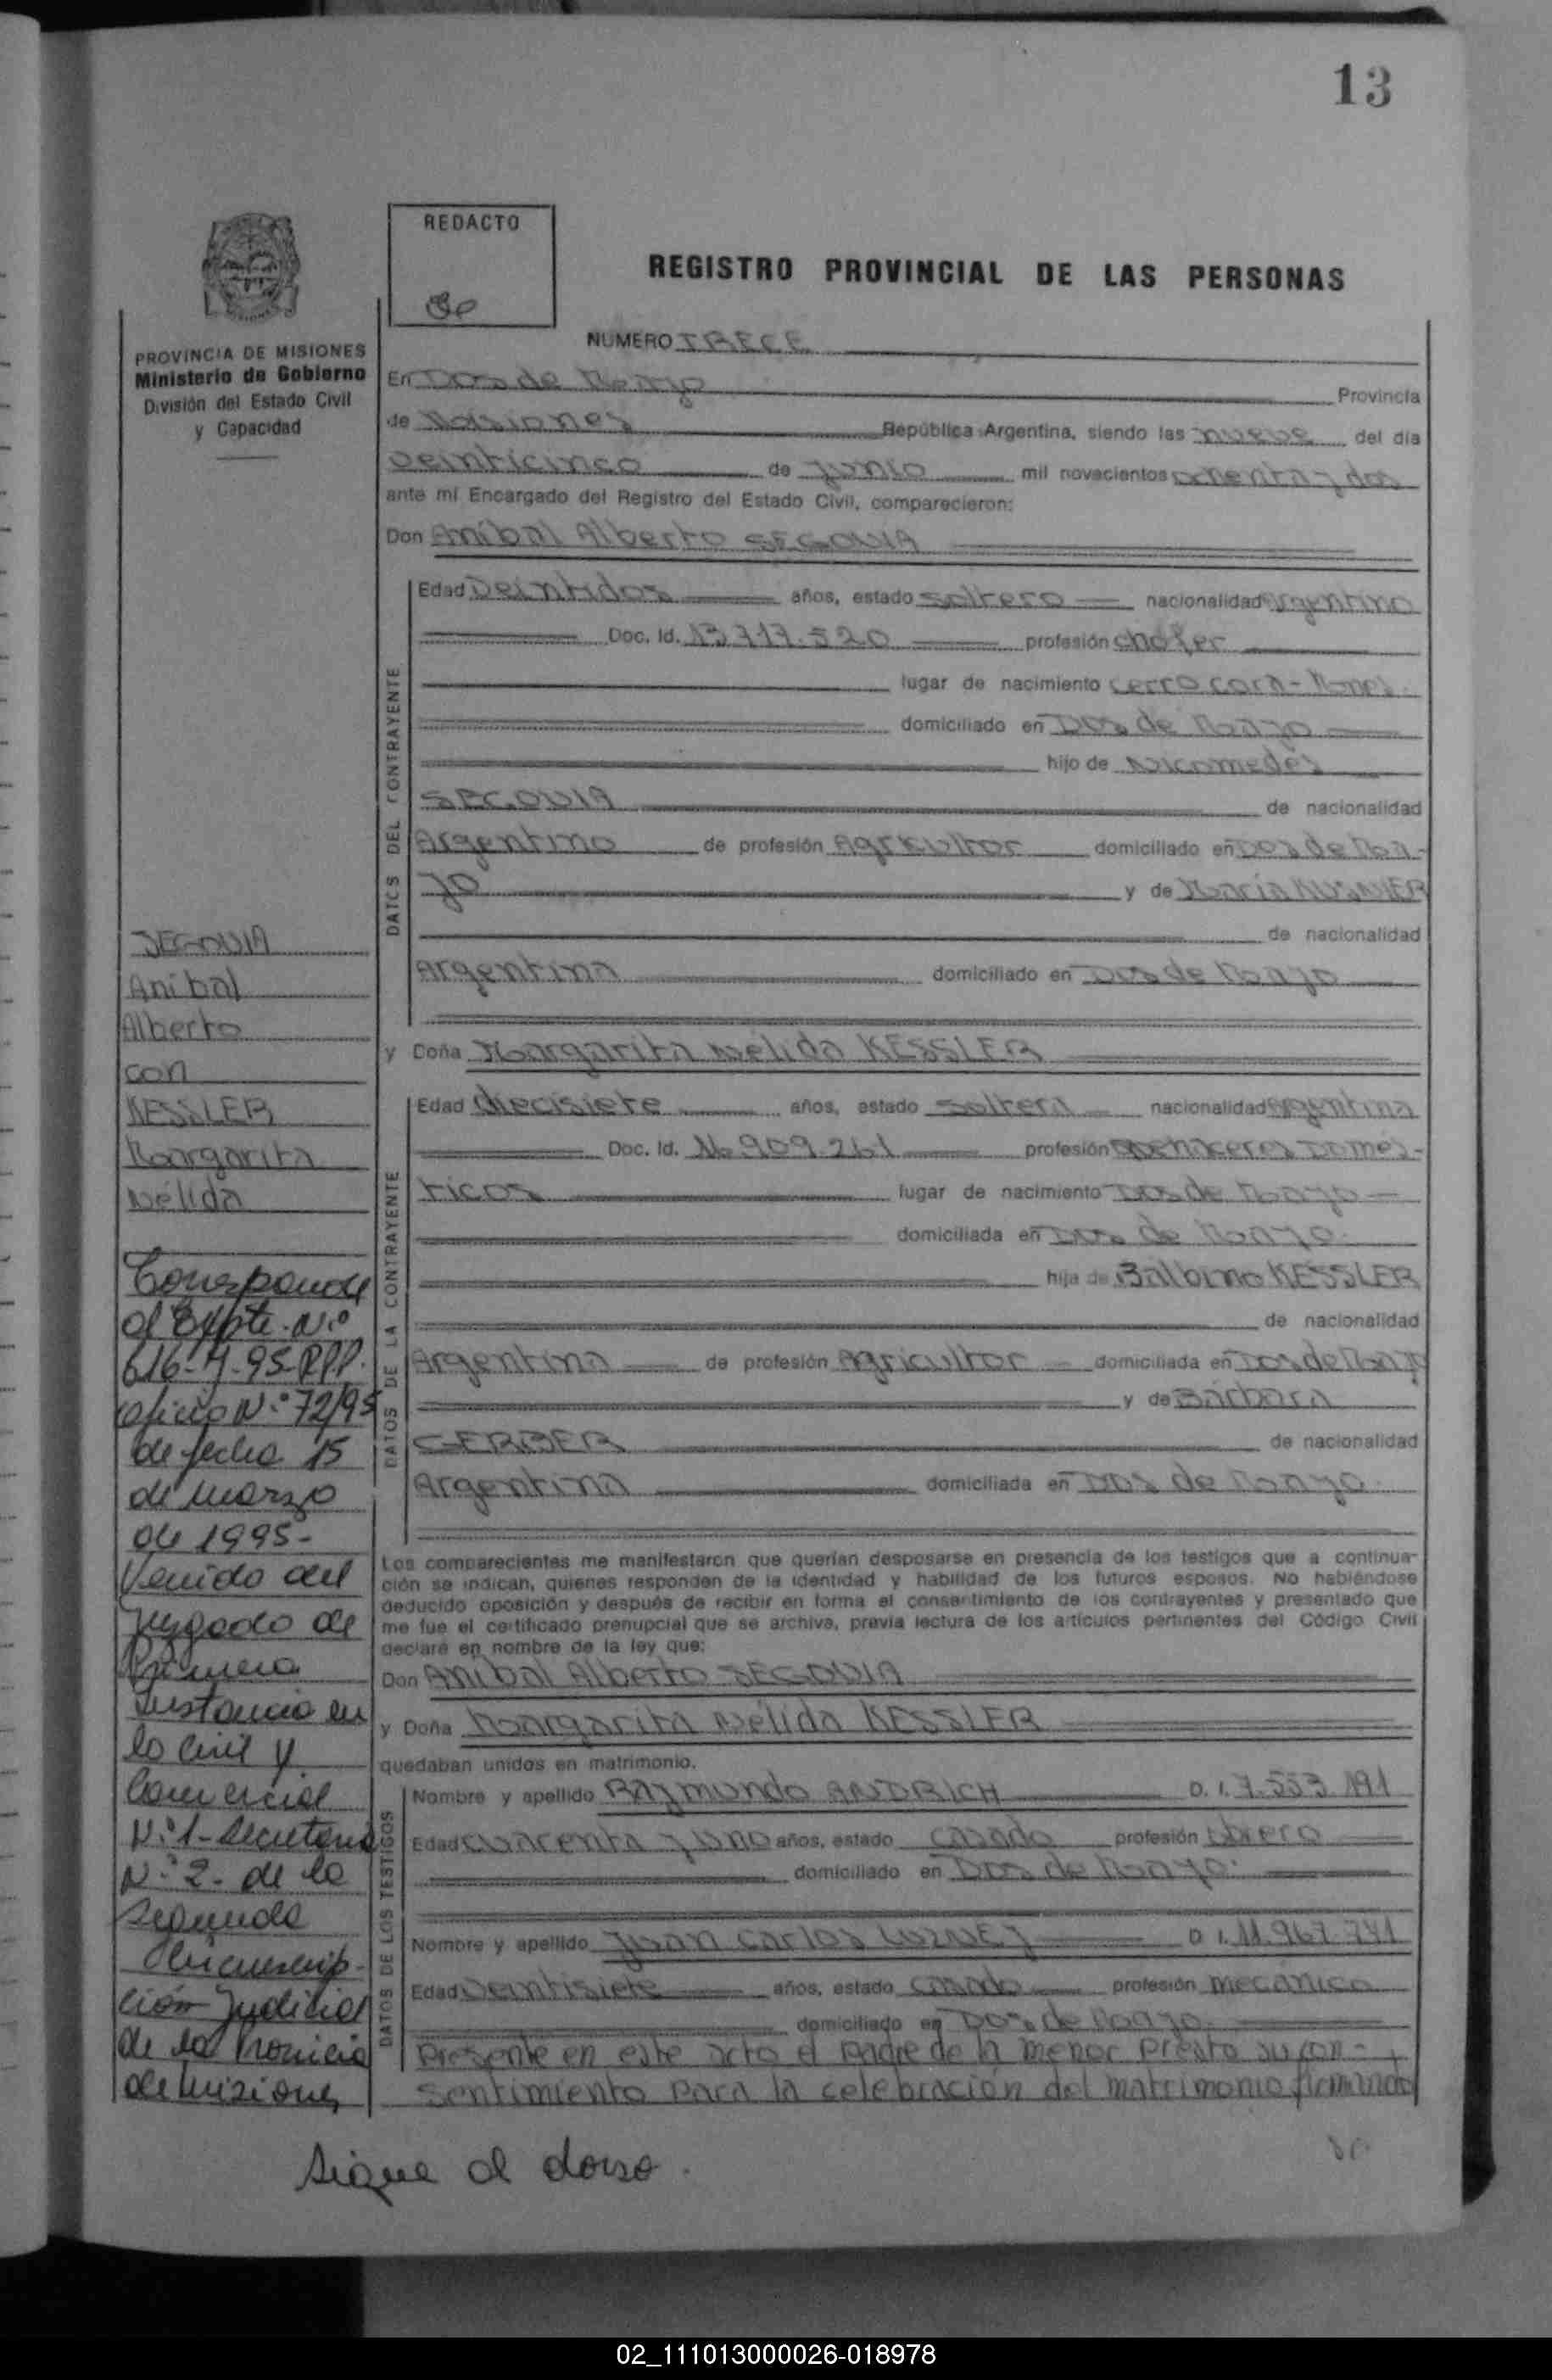 13
REDACTO
REGISTRO PROVINCIAL DE LAS PERSONAS
NUMERO TRECE
PROVINCIA DE MISIONES
Ministerio de Gobierno
División del Estado Civil
y Capacidad
En Dos de Mayo Provincia
de Misiones República Argentina, siendo las nueve del día
veinticinco de junio mil novecientos ochenta y dos
ante mí Encargado del Registro del Estado Civil, comparecieron:
Don Aníbal Alberto SEGOVIA
DATOS DEL CONTRAYENTE
Edad veintidos años, estado soltero nacionalidad argentino
Doc. Id. 13.717.520 profesión chofer
lugar de nacimiento cerro corá - Mnes.
domiciliado en Dos de Mayo
hijo de Nicomedes
SEGOVIA de nacionalidad
Argentino de profesión Agricultor domiciliado en Dos de Ma-
yo y de María
de nacionalidad
Argentina domiciliado en Dos de Mayo
y Doña Margarita Nélida KESSLER
DATOS DE LA CONTRAYENTE
Edad diecisiete años, estado soltera nacionalidad argentina
Doc. Id. No 909.261 profesión quehaceres Domés-
ticos lugar de nacimiento Dos de Mayo
domiciliada en Dos de Mayo.
hija de Balbino KESSLER
de nacionalidad
Argentina de profesión Agricultor domiciliada en Dos de Mayo
y de Bárbara
GERBER de nacionalidad
Argentina domiciliada en Dos de Mayo.
Los comparecientes me manifestaron que querían desposarse en presencia de los testigos que a continua-
ción se indican, quienes responden de la identidad y habilidad de los futuros esposos. No habiéndose
deducido oposición y después de recibir en forma el consentimiento de los contrayentes y presentado que
me fue el certificado prenupcial que se archiva, previa lectura de los artículos pertinentes del Código Civil
declaré en nombre de la ley que:
Don Aníbal Alberto SEGOVIA
y Doña Margarita Nélida KESSLER
quedaban unidos en matrimonio.
DATOS DE LOS TESTIGOS
Nombre y apellido Raymundo ANDRICH D. I. 7.553.191
Edad cuarenta y uno años, estado casado profesión obrero
domiciliado en Dos de Mayo.
Nombre y apellido Juan Carlos D. I. 11.967.741
Edad veintisiete años, estado casado profesión mecánico
domiciliado en Dos de Mayo.
Presente en este acto el padre de la menor presta su con-
sentimiento para la celebración del matrimonio firmando
SEGOVIA
Aníbal
Alberto
con
KESSLER
Margarita
Nélida
Corresponde
al Expte. N°
616-M-95-RPP.
oficio N° 72/95
de fecha 15
de marzo
de 1995-
Venido del
Juzgado de
Primera
Instancia en
lo Civil y
Comercial
N° 1 - Secretaria
N° 2- de la
Segunda
Circunscrip-
ción Judicial
de la Provincia
de Misiones
Sigue al dorso.
02_111013000026-018978